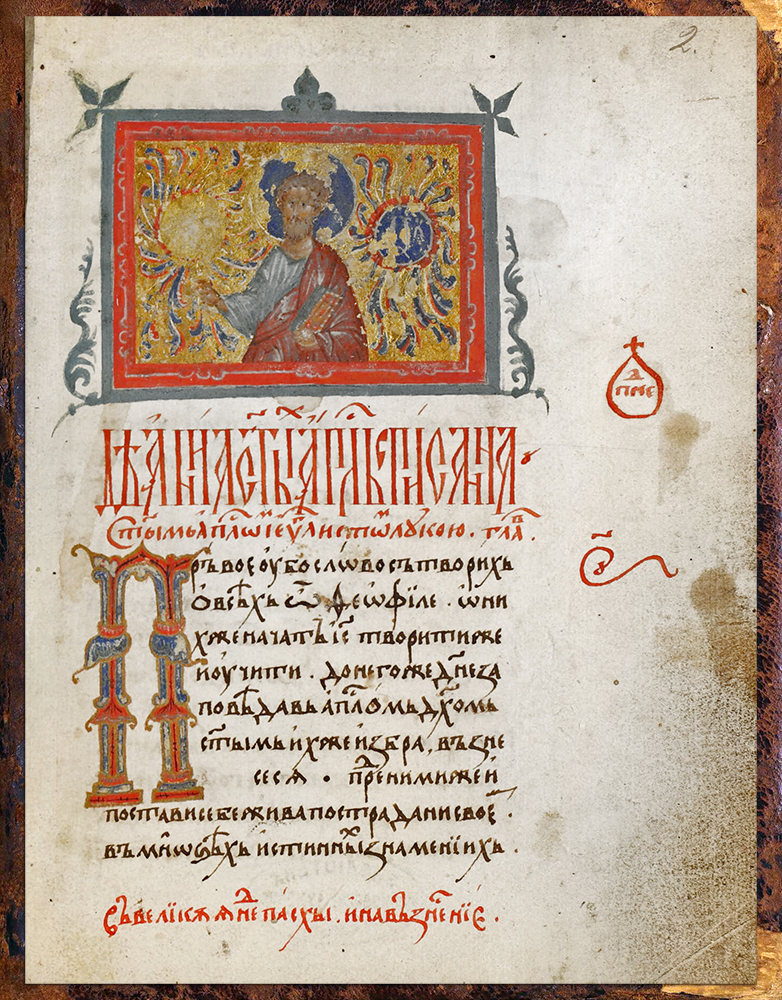 2.
дѣанїа ст҃ыⷯ ап҃лъ списана
ст҃ымь ап҃лѡⷨ и еѵⷢ҇листѡⷨ лукою. глаⷡ҇.
Пръвое оубо слѡво сътворихъ
ѡ всѣхь ѡ҃ ѳеѡфїле. ѡ ни
хже начатъ і҆с҃ творити же
и оучити. до негоже дн҃е за
повѣдавь ап҃лѡмь дх҃ѡмь
ст҃ымь ихже избра, възне
сеся. прⷣе нимиже и
постави себе жива по страдани своеⷨ.
въ мнѡѕѣхь истинныⷯ знаменїихь.
съ великяя нⷣе пасхы. и на възнⷭ҇енїе.